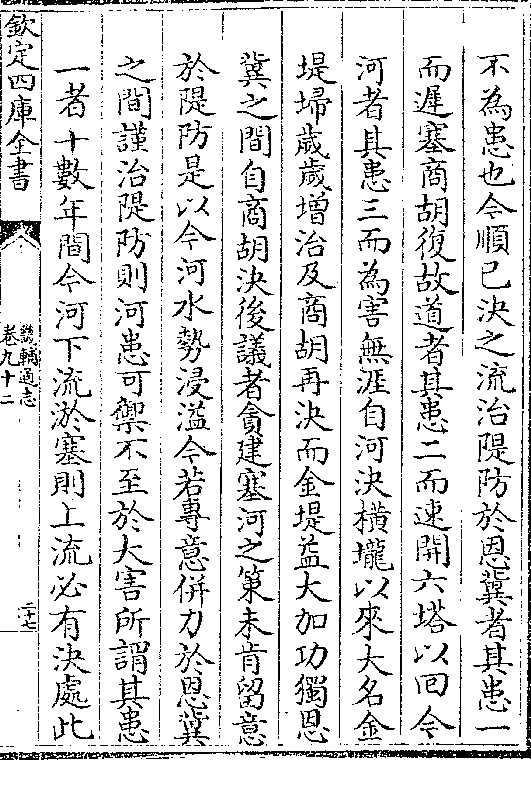 不為患也今順已決之流治隄防於恩冀者其患一
而遲塞商胡復故道者其患二而速開六塔以回今
河者其患三而為害無涯自河決横壠以來大名金
堤埽歲歲增治及商胡再決而金堤益大加功獨恩
冀之間自商胡決後議者貪建塞河之策未肯留意
於隄防是以今河水勢浸溢今若專意併力於恩冀
之間謹治隄防則河患可禦不至於大害所謂其患
一者十數年間今河下流淤塞則上流必有決處此
欽定四庫全書
畿輔通志
卷九十二
二十七